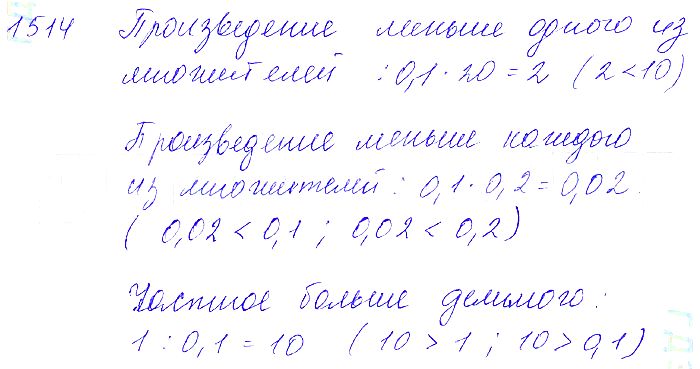 1514 Произведение меньше одного из
множителей : 0,1 · 20 = 2 (2 < 10)
Произведение меньше каждого
из множителей : 0,1 · 0,2 = 0,02.
( 0,02 < 0,1 ; 0,02 < 0,2 )
Частное больше делимого :
1 : 0,1 = 10 ( 10 > 1 ; 10 > 0,1 )